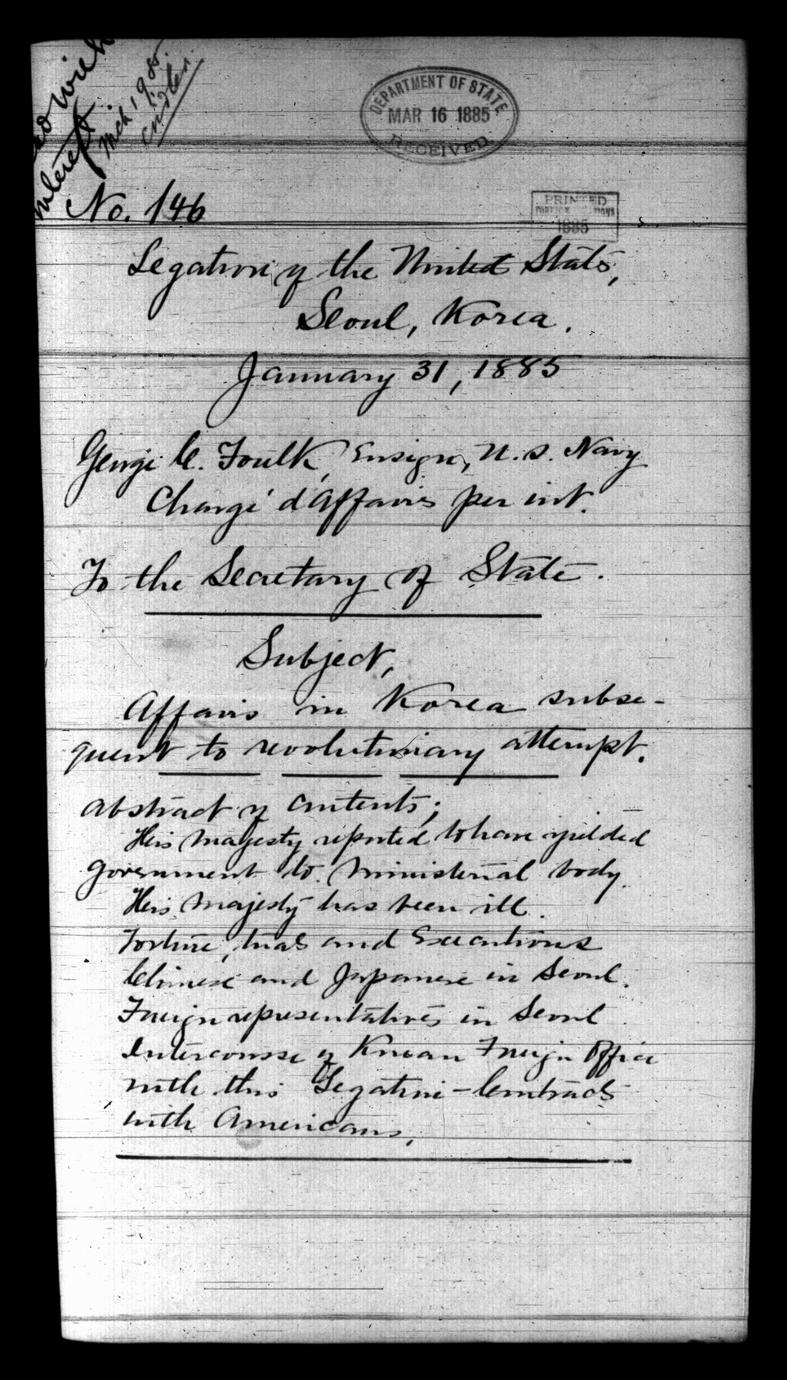 ed with
interest
Mch 19 85
DEPARTMENT OF STATE
MAR 16 1885
RECEIVED
No. 146
PRINTED
1885
Legation of the United States,
Seoul, Korea.
January 31, 1885
George C. Foulk, Ensign, U.S. Navy
Chargé d'Affaires per int.
To the Secretary of State.
Subject,
Affairs in Korea subse-
quent to revolutionary attempt.
Abstract of contents;
His Majesty reported to have yielded
Government to Ministerial body.
His Majesty has been ill.
Torture, trials and Executions
Chinese and Japanese in Seoul.
Foreign representatives in Seoul
Intercourse of Korean Foreign Office
with this Legation - Contracts
with Americans.